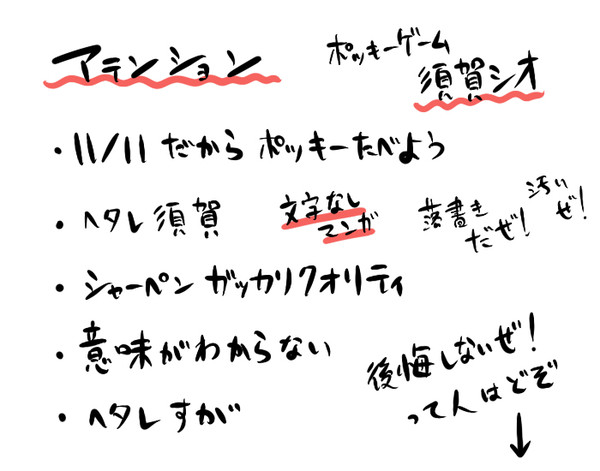 アテンション
ポッキーゲーム
須賀シオ
・11/11 だから ポッキーたべよう
・ヘタレ須賀
文字なし
マンガ
落書き
だぜ!
汚い
ぜ!
・シャーペン ガッカリクオリティ
・意味がわからない
・ヘタレすが
後悔しないぜ!
って人はどぞ
↓